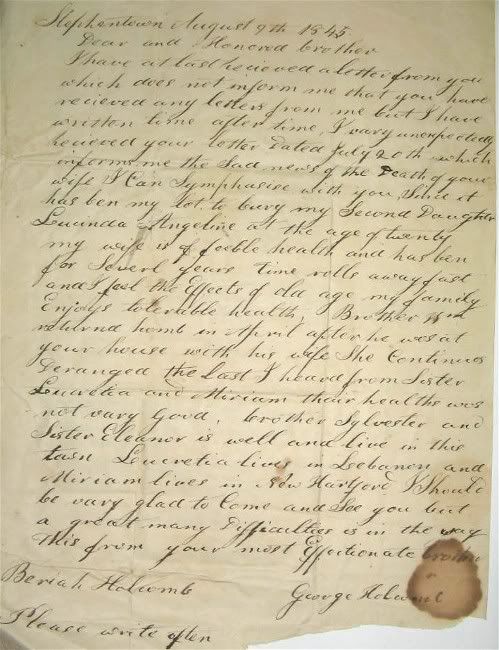 Stephentown August 9th 1845
Dear and Honored brother
I have at last recieved a letter from you
which does not inform me that you have
recieved any letters from me but I have
written time after time, I vary unexpectedly
recieved your letter Dated July 20th which
informs me the Sad news of the Death of your
wife I Can Symphasise with you, Since it
has ben my lot to bury my Second Daughter
Lucinda Angeline at the age of twenty
my wife is of feeble health and has ben
for Severl years time rolls away fast
and I feel the Effects of old age my family
Enjoys tolerable health, Brother Wm
returnd home in April after he was at
your house with his wife She Continues
Deranged the Last I heard from Sister
Lucretia and Miriam thair healths was
not vary Good, brother Sylvester and
Sister Eleanor is well and live in this
town Lucretia lives in Lebanon and
Miriam lives in New Hartford I Should
be vary glad to Come and See you but
a great many Difficulties is in the way
This from your most Effectionate brother
Beriah Holcomb
George Holcomb
Please write often